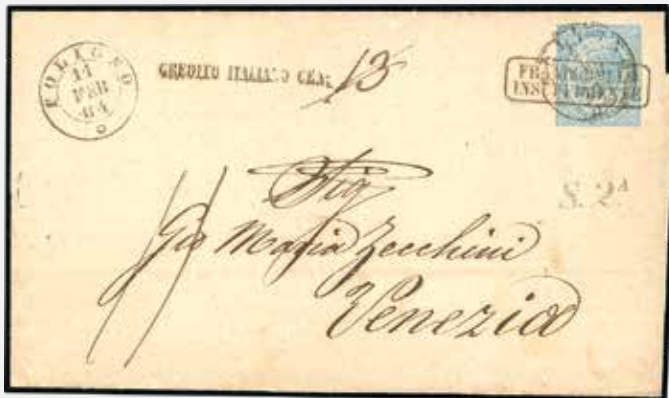 FOLIGNO
14
FEB
64
CREDITO ITALIANO CENT. 13
FRANCOBOLLO
INSUFFICIENTE
S. 2ᵈ
Sig
Gio Maria Zecchini
Venezia